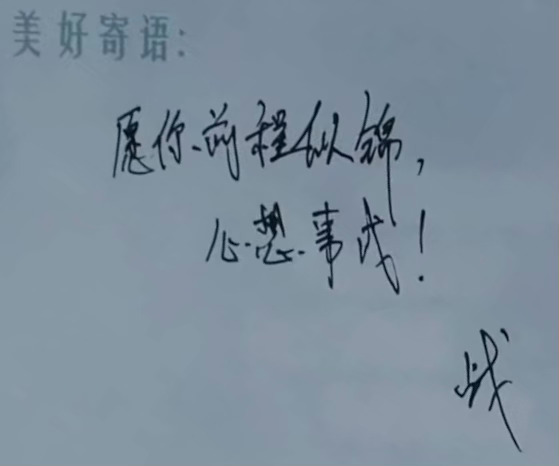 美好寄语:
愿你前程似锦,
心想事成!